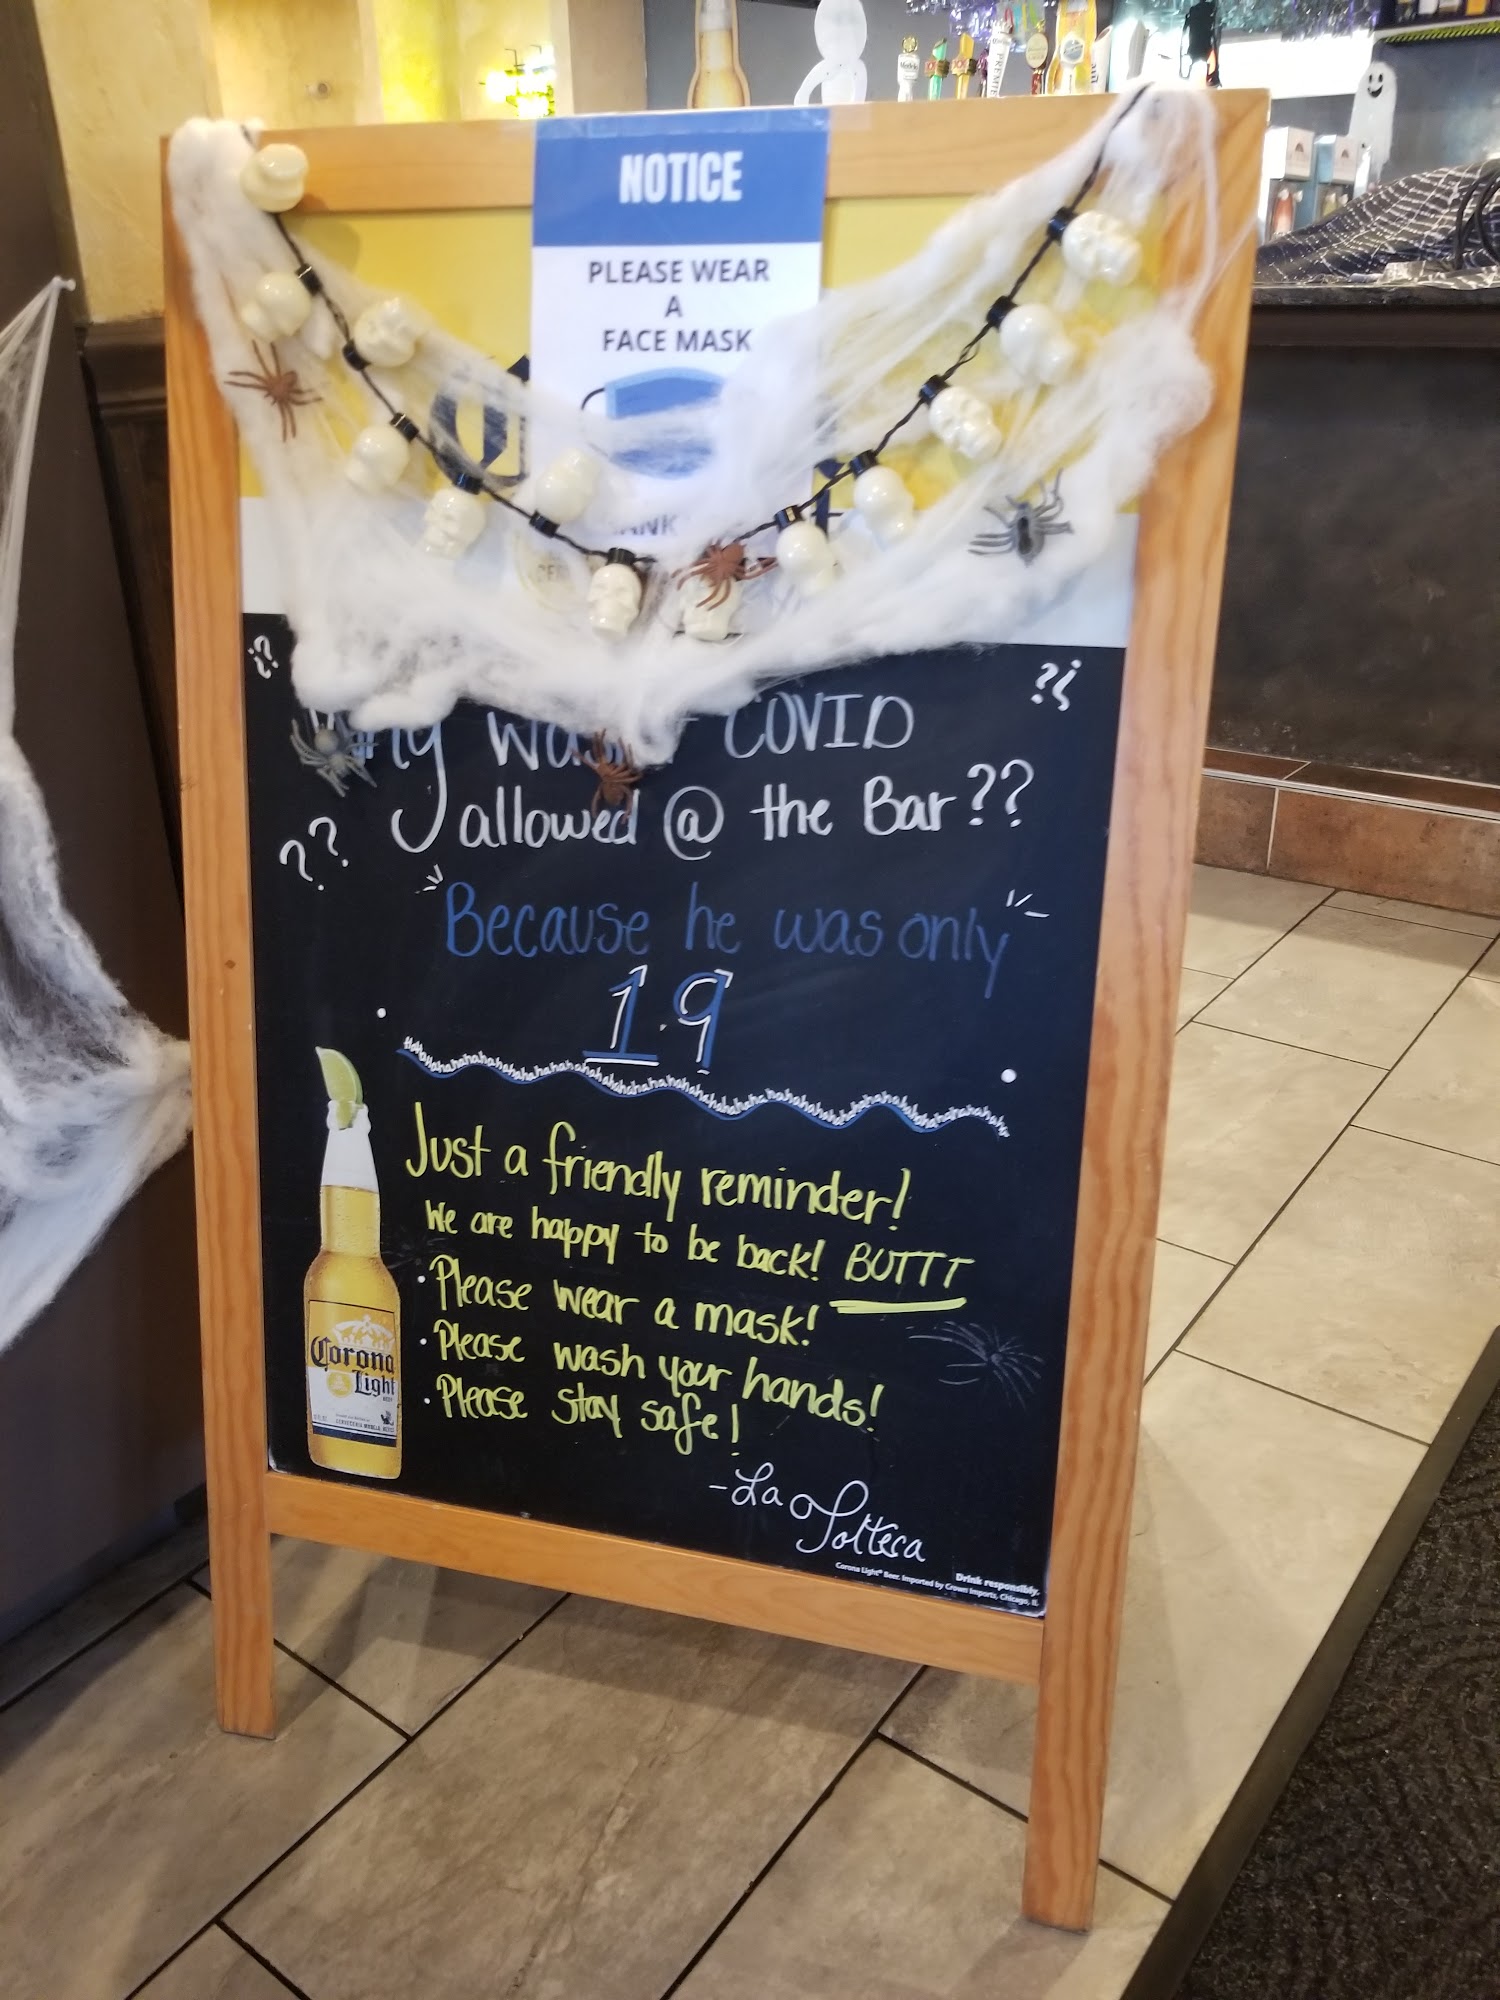 NOTICE
PLEASE WEAR
A
FACE MASK
¿? ?¿
COVID
allowed @ the Bar??
??
Because he was only
19
HaHaHahahahahahahahahahahahahahahahahahahahahahahahahahahahaha
Just a friendly reminder!
We are happy to be back! BUTTT
• Please wear a mask!
• Please wash your hands!
• Please stay safe!
- La Tolteca
Corona
Light
BEER
Drink responsibly.
Corona Light® Beer. Imported by Crown Imports, Chicago, IL